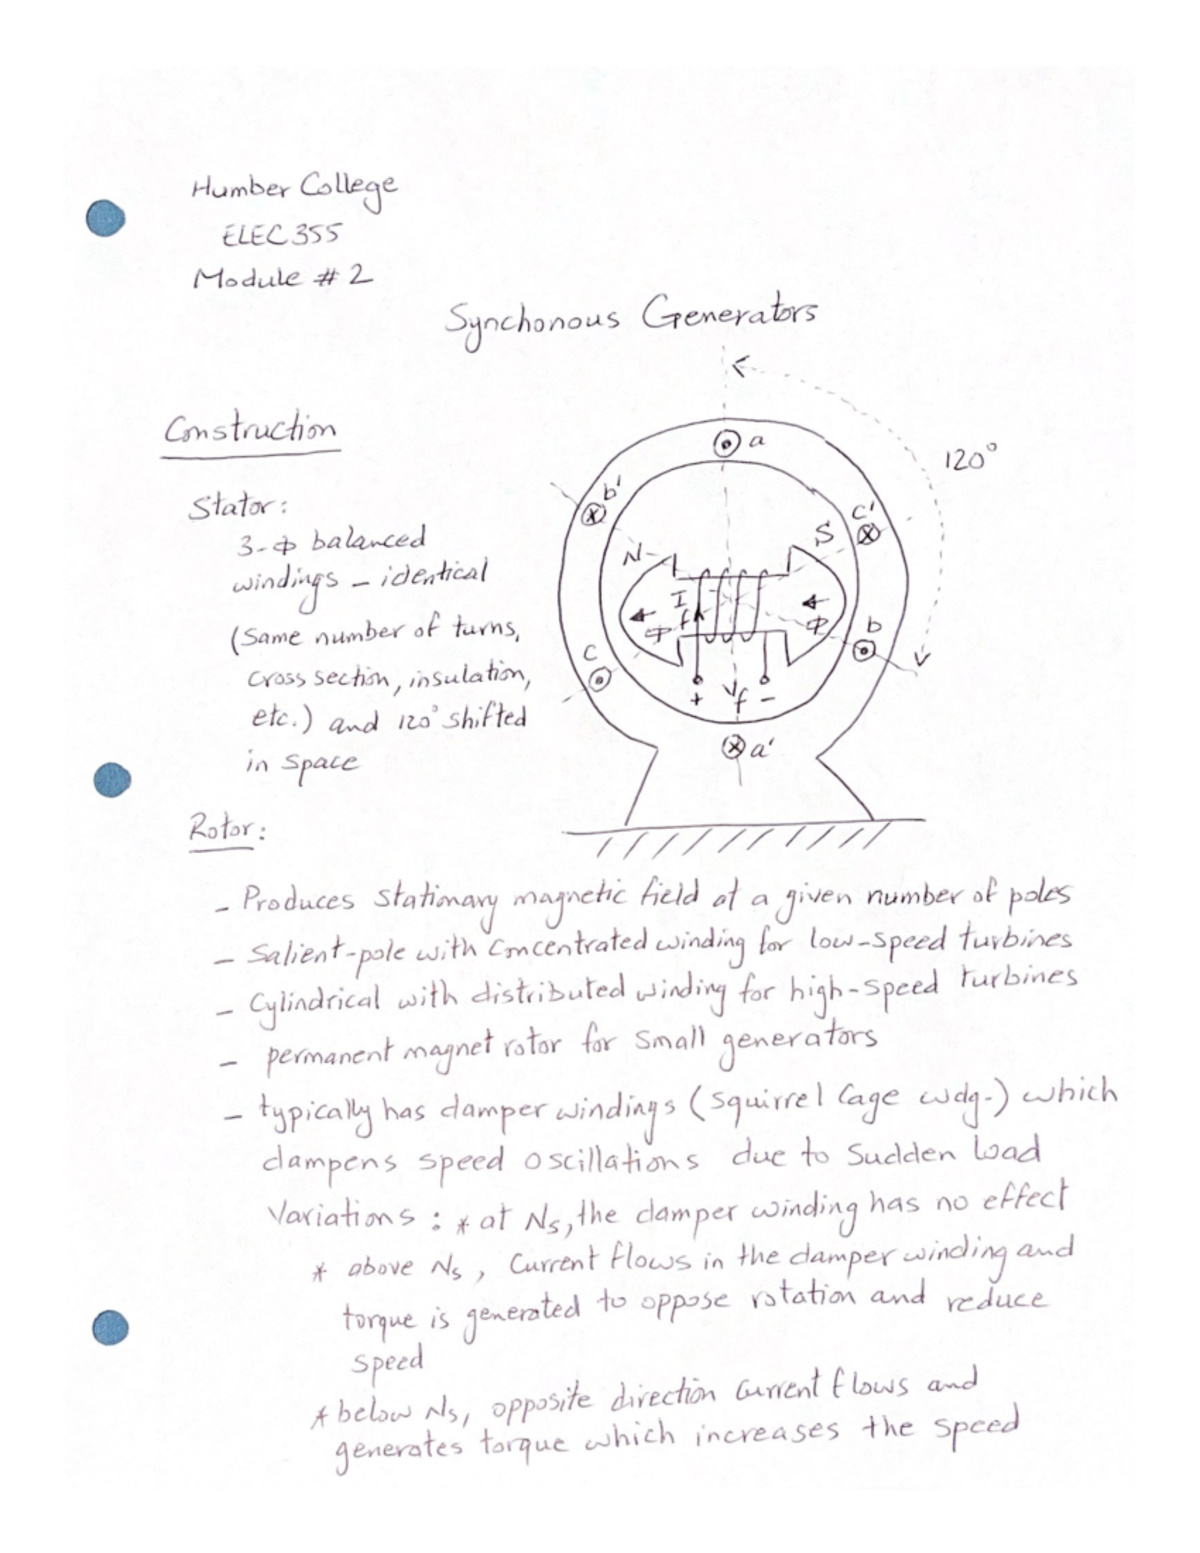 Humber College
ELEC 355
Module # 2
Synchonous Generators
Construction
120°
a
b'
c'
S
N
Stator:
3-Φ balanced
windings - identical
(Same number of turns,
cross section, insulation,
etc.) and 120° shifted
in space
If
Φ
Φ
b
c
+ Vf -
a'
Rotor:
- Produces stationary magnetic field at a given number of poles
- Salient-pole with concentrated winding for low-speed turbines
- Cylindrical with distributed winding for high-speed turbines
- permanent magnet rotor for small generators
- typically has damper windings (squirrel cage wdg.) which
dampens speed oscillations due to sudden load
variations : * at Ns, the damper winding has no effect
* above Ns, Current flows in the damper winding and
torque is generated to oppose rotation and reduce
speed
* below Ns, opposite direction current flows and
generates torque which increases the speed